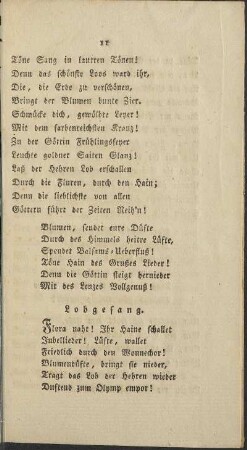 11
Töne Sang in lautern Tönen!
Denn das schönste Loos ward ihr,
Die, die Erde zu verschönen,
Bringt der Blumen bunte Zier.
Schmücke dich, gewölbte Leyer!
Mit dem farbenreichsten Kranz!
Zu der Göttin Frühlingsfeyer
Leuchte goldner Saiten Glanz!
Laß der Hehren Lob erschallen
Durch die Fluren, durch den Hain;
Denn die lieblichste von allen
Göttern führt der Zeiten Reih'n!
Blumen, sendet eure Düfte
Durch des Himmels heitre Lüfte,
Spendet Balsams-Ueberfluß!
Töne Hain des Grußes Lieder!
Denn die Göttin steigt hernieder
Mit des Lenzes Vollgenuß!
Lobgesang.
Flora naht! Ihr Haine schallet
Jubellieder! Lüfte, wallet
Friedlich durch den Wonnechor!
Blumendüfte, bringt sie nieder,
Tragt das Lob der Hehren wieder
Duftend zum Olymp empor!